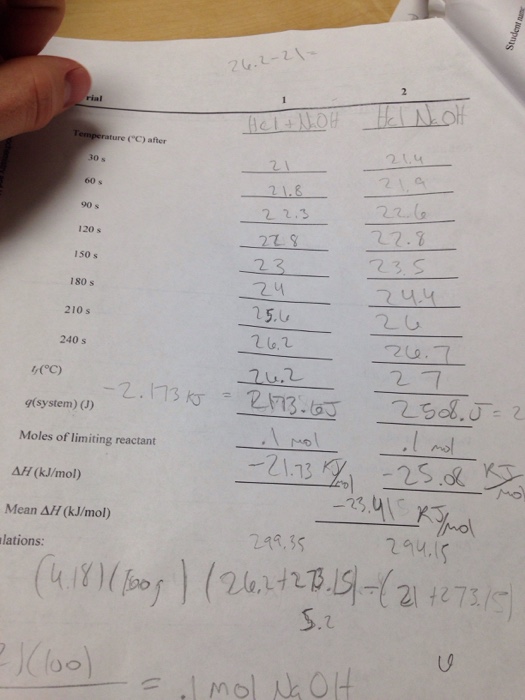 Student
26.2-21-
rial 1 2
HCl + NaOH HCl NaOH
Temperature (°C) after
30 s 21 21.4
60 s 21.8 21.9
90 s 22.3 22.6
120 s 22.8 22.8
150 s 23 23.5
180 s 24 24.4
210 s 25.6 26
240 s 26.2 26.7
tf(°C) 26.2 27
q(system) (J) -2.173 KJ = 2173.6J 2508.J = 2
Moles of limiting reactant .1 mol .1 mol
ΔH (kJ/mol) -21.73 KJ/mol -25.08 KJ/mol
Mean ΔH (kJ/mol) -23.415 KJ/mol
lations: 299.35 294.15
(4.18)(100g) (26.2+273.15)-(21+273.15)
5.2
)(100) = .1 mol NaOH